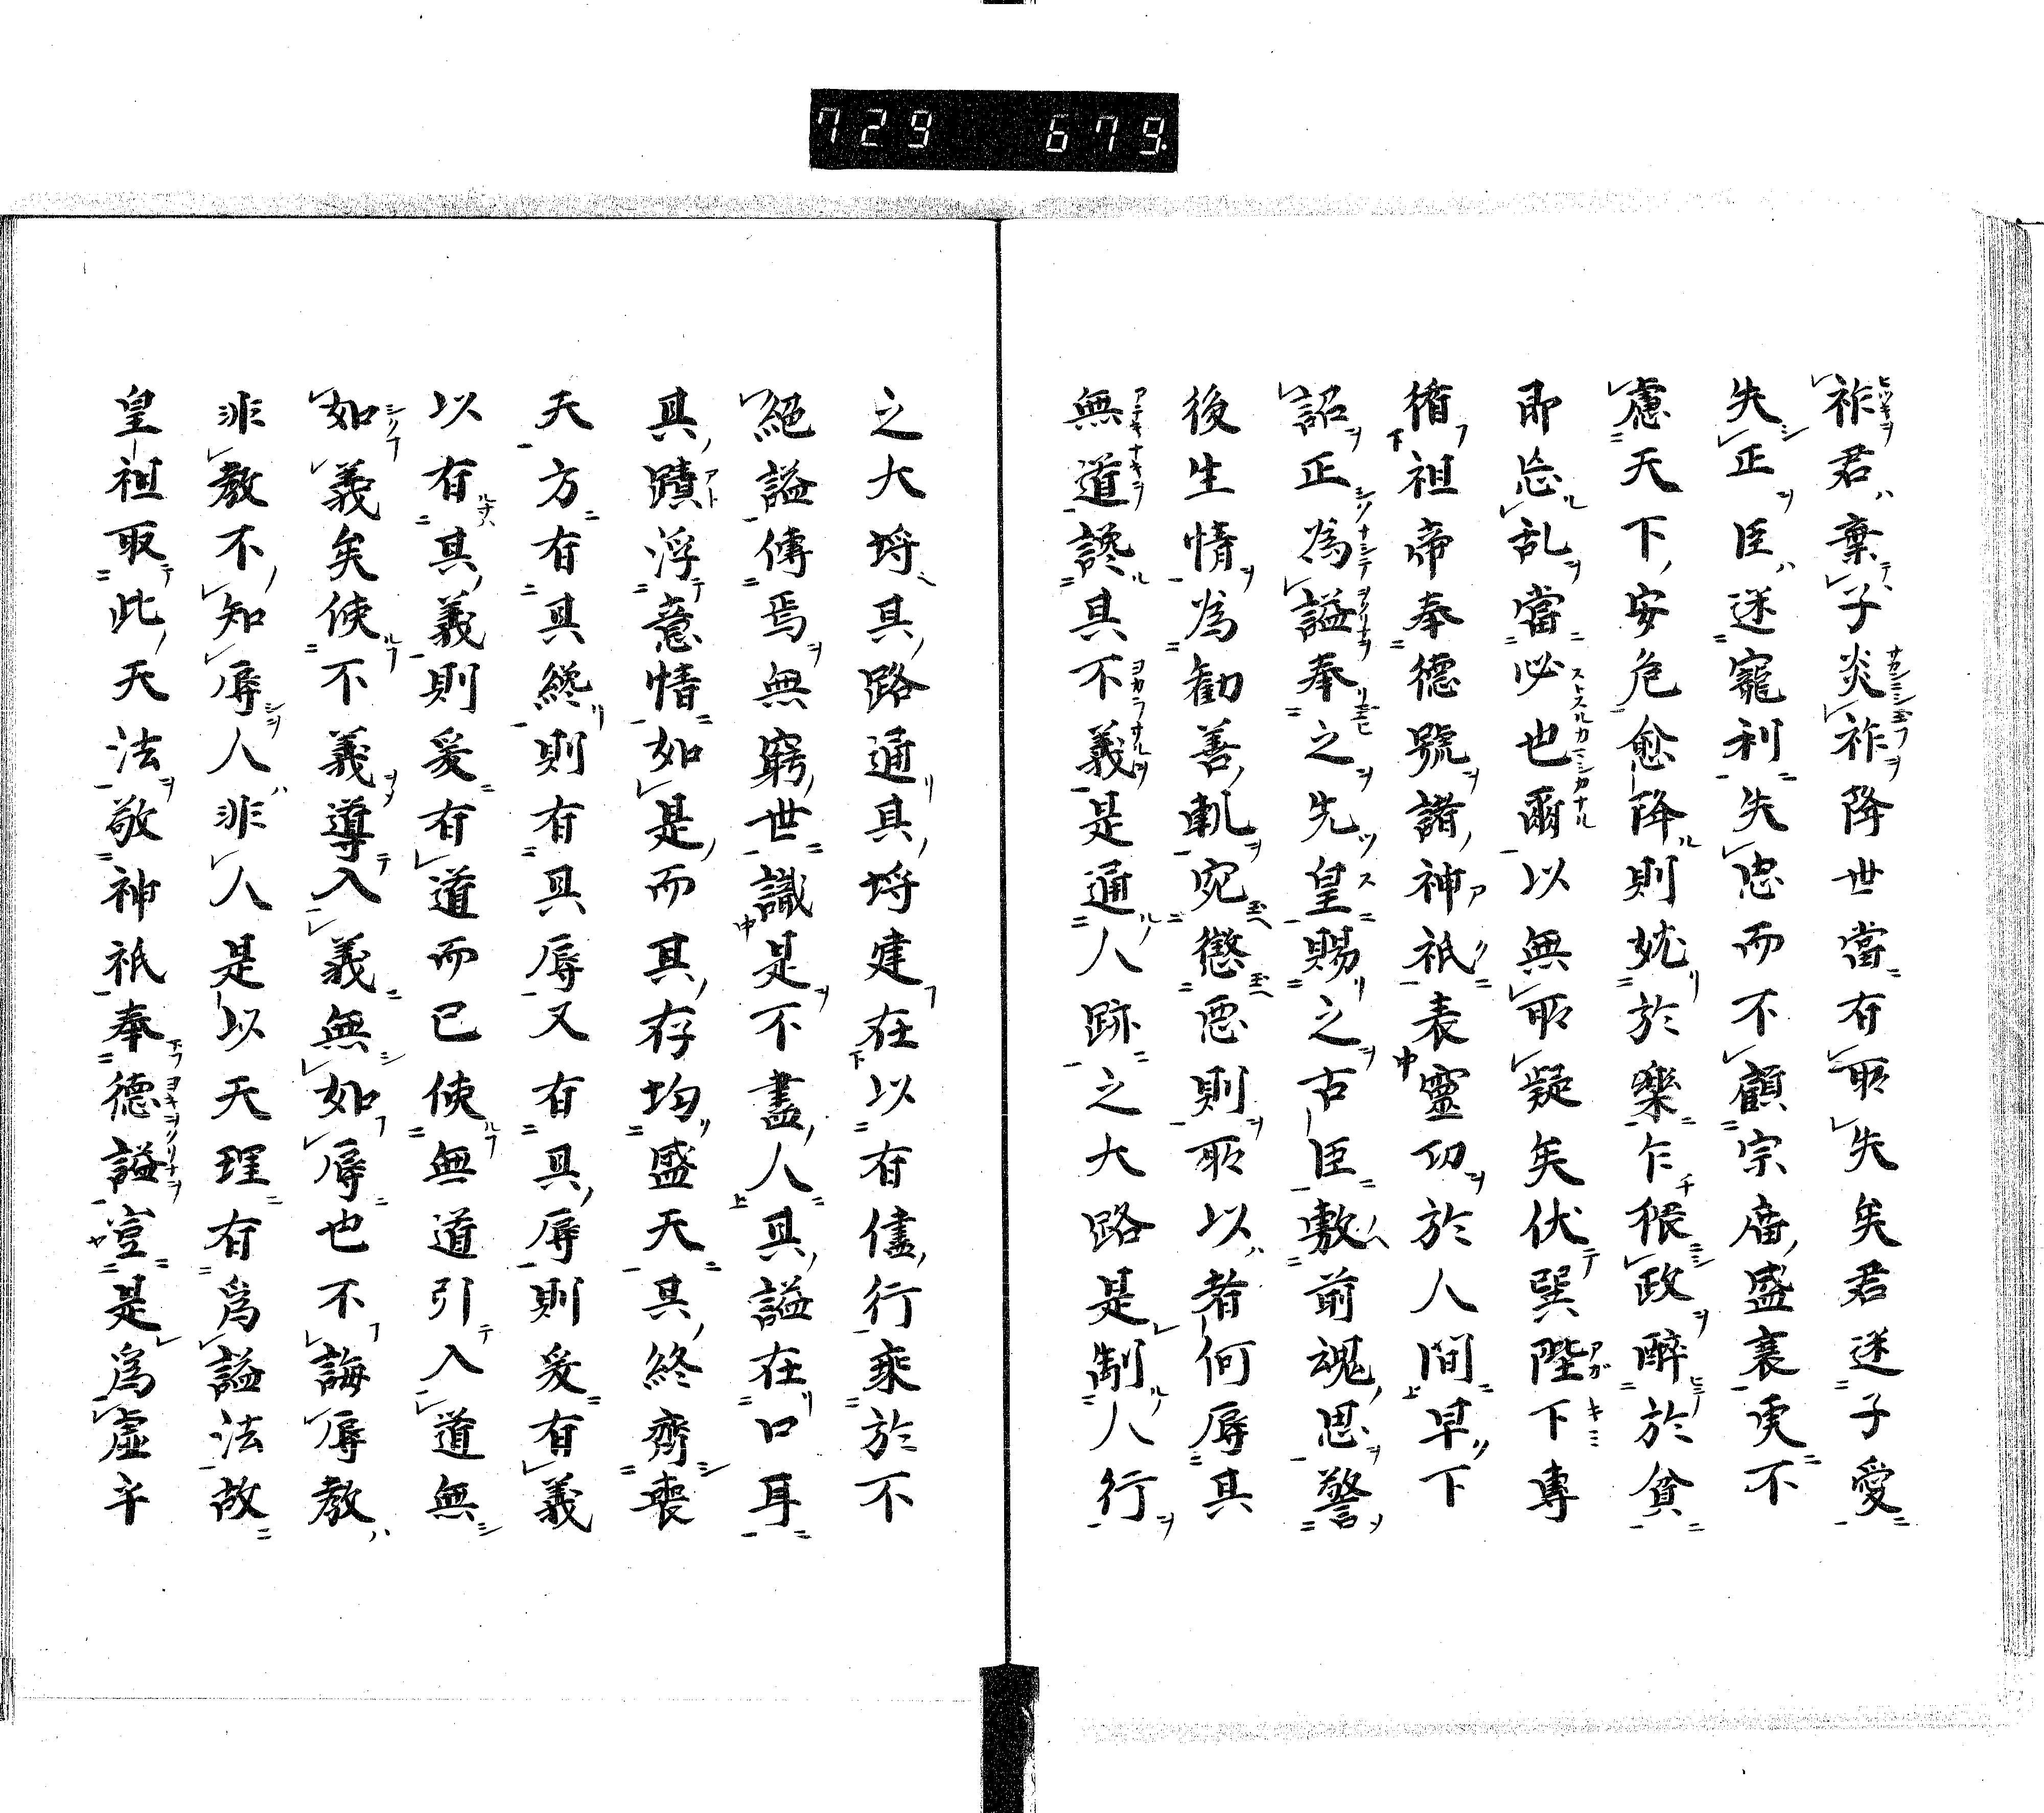 729 679.
祚君棄子炎祚降世當有所失矣君迷子愛
失正臣迷寵利失忠而不顧宗庿盛衰臾不
慮天下安危愈降則妣於樂乍很政醉於貪
即忘乱當必也爾以無所疑矣伏巽陛下專
循祖帝奉德號諸神祇表靈功於人間早下
詔正為謚奉之先皇賜之古臣敷前魂思警
後生情為勧善軌宛懲悪則所以者何辱其
無道讒其不義是通人跡之大路是制人行
之大埒其路通其埒建在以有儘行乘於不
絕謚傳焉無窮世識是不盡人具謚在口耳
其蹟浮意情如是而其存均盛天其終齊喪
天方有其終則有其辱又有其辱則爰有義
以有其義則爰有道而已使無道引入道無
如義矣使不義導入義無如辱也不誨辱教
非教不知辱人非人是以天理有爲謚法故
皇祖取此天法敬神祇奉德謚豈是爲虛乎